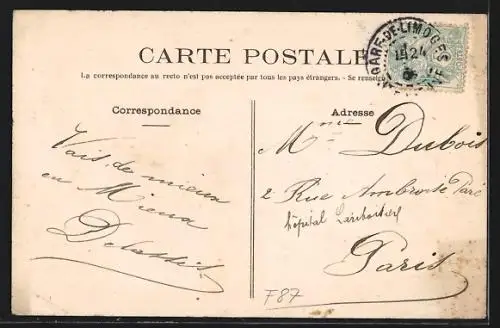 CARTE POSTALE
La correspondance au recto n'est pas acceptée par tous les pays étrangers. - Se renseigner
GARE-DE-LIMOGES
Correspondance
Adresse
Vais de mieux
en Mieux
Mme Dubois
2 Rue Ambroise Paré
hôpital Lariboisière
Paris
F87